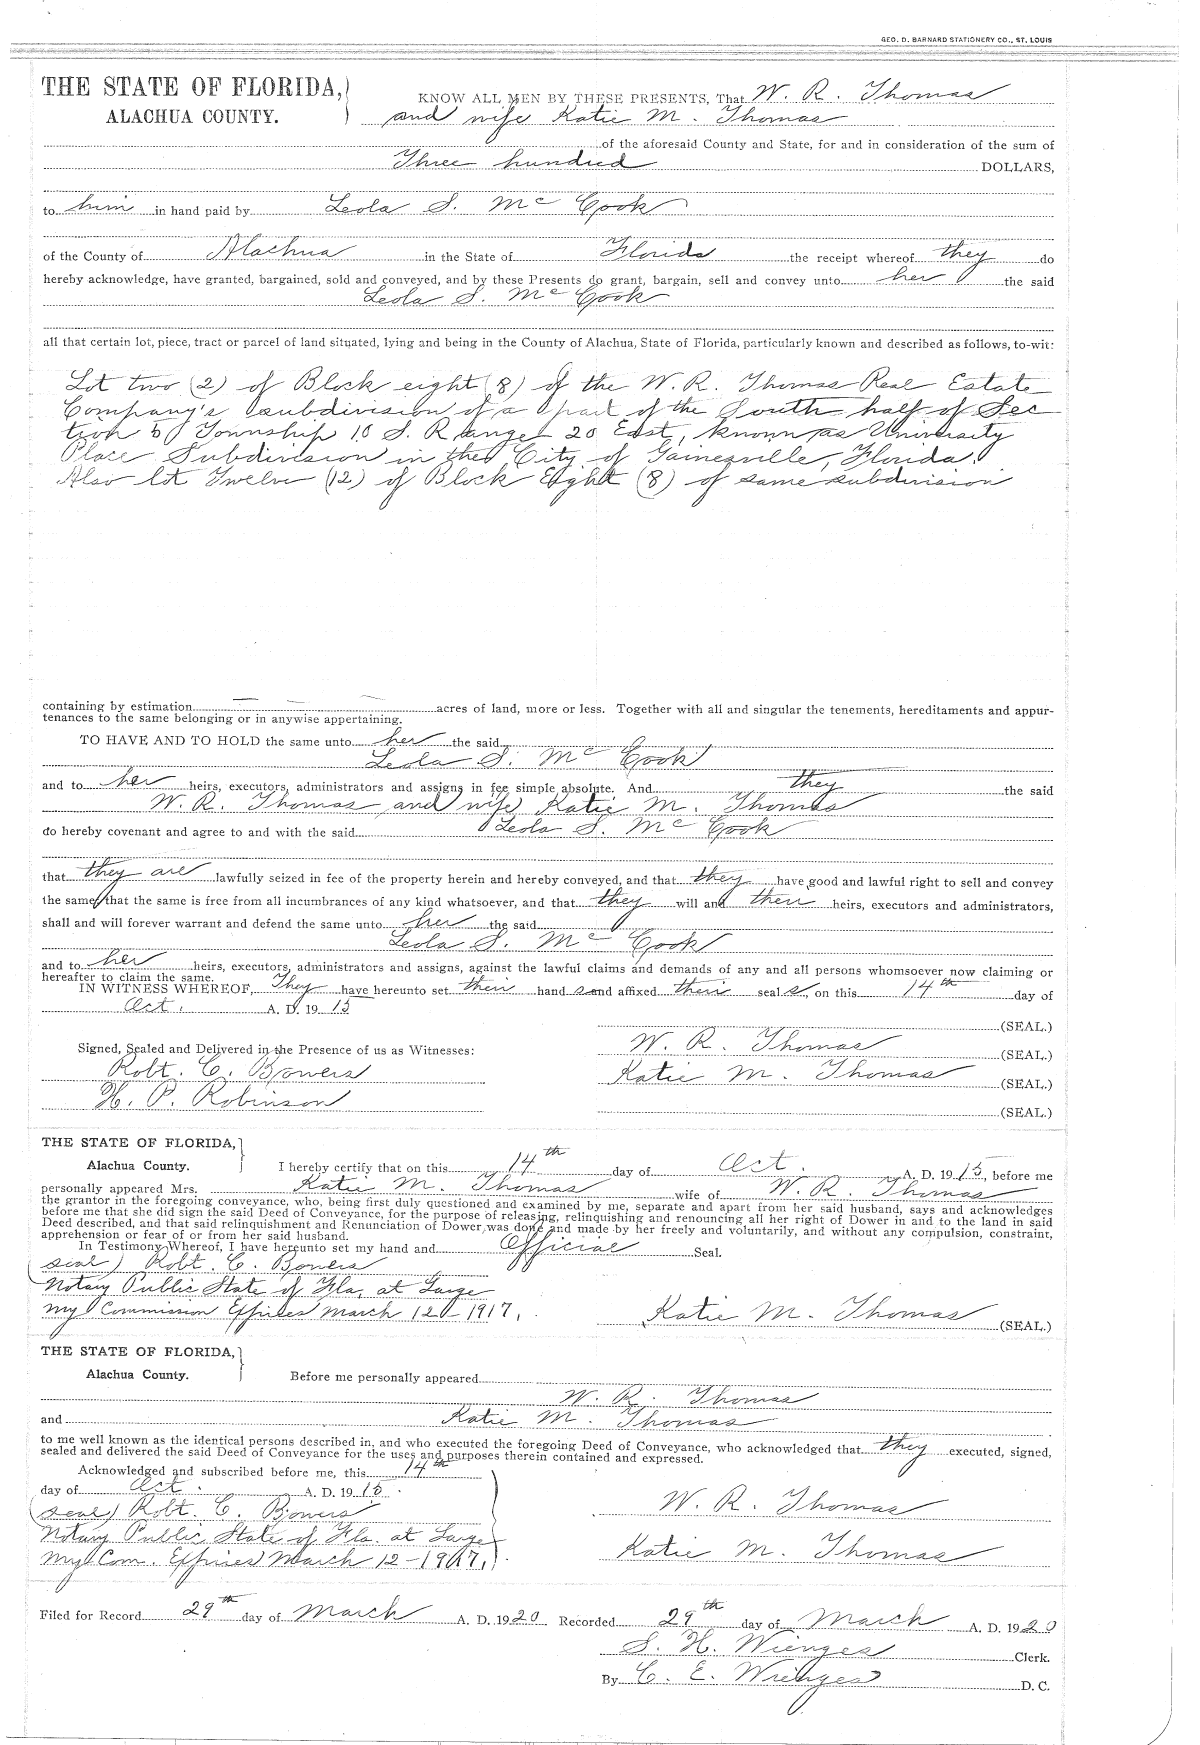 GEO. D. BARNARD STATIONERY CO., ST. LOUIS
THE STATE OF FLORIDA,
ALACHUA COUNTY.
KNOW ALL MEN BY THESE PRESENTS, That W. R. Thomas
and wife Katie M. Thomas
of the aforesaid County and State, for and in consideration of the sum of
Three hundred DOLLARS,
to him in hand paid by Leola S. McCook
of the County of Alachua in the State of Florida the receipt whereof they do
hereby acknowledge, have granted, bargained, sold and conveyed, and by these Presents do grant, bargain, sell and convey unto her the said
Leola S. McCook
all that certain lot, piece, tract or parcel of land situated, lying and being in the County of Alachua, State of Florida, particularly known and described as follows, to-wit:
Lot two (2) of Block eight (8) of the W. R. Thomas Real Estate
Company's subdivision of a part of the South half of Sec
tion 5 Township 10 S. Range 20 East, known as University
Place Subdivision in the City of Gainesville, Florida.
Also lot Twelve (12) of Block Eight (8) of same subdivision
containing by estimation acres of land, more or less. Together with all and singular the tenements, hereditaments and appur-
tenances to the same belonging or in anywise appertaining.
TO HAVE AND TO HOLD the same unto her the said
Leola S. McCook
and to her heirs, executors, administrators and assigns in fee simple absolute. And they the said
W. R. Thomas and wife Katie M. Thomas
do hereby covenant and agree to and with the said Leola S. McCook
that they are lawfully seized in fee of the property herein and hereby conveyed, and that they have good and lawful right to sell and convey
the same; that the same is free from all incumbrances of any kind whatsoever, and that they will and their heirs, executors and administrators,
shall and will forever warrant and defend the same unto her the said
Leola S. McCook
and to her heirs, executors, administrators and assigns, against the lawful claims and demands of any and all persons whomsoever now claiming or
hereafter to claim the same.
IN WITNESS WHEREOF, They have hereunto set their hand s and affixed their seal s, on this 14th day of
Oct. A. D. 19 15
(SEAL.)
W. R. Thomas (SEAL.)
Signed, Sealed and Delivered in the Presence of us as Witnesses:
Robt. C. Bowers
Katie M. Thomas (SEAL.)
H. P. Robinson
(SEAL.)
THE STATE OF FLORIDA,
Alachua County.
I hereby certify that on this 14th day of Oct. A. D. 19 15, before me
personally appeared Mrs. Katie M. Thomas wife of W. R. Thomas
the grantor in the foregoing conveyance, who, being first duly questioned and examined by me, separate and apart from her said husband, says and acknowledges
before me that she did sign the said Deed of Conveyance, for the purpose of releasing, relinquishing and renouncing all her right of Dower in and to the land in said
Deed described, and that said relinquishment and Renunciation of Dower was done and made by her freely and voluntarily, and without any compulsion, constraint,
apprehension or fear of or from her said husband.
In Testimony Whereof, I have hereunto set my hand and Official Seal.
(seal) Robt. C. Bowers
Notary Public State of Fla. at Large
my Commission Expires March 12-1917.
Katie M. Thomas (SEAL.)
THE STATE OF FLORIDA,
Alachua County.
Before me personally appeared
W. R. Thomas
and Katie M. Thomas
to me well known as the identical persons described in, and who executed the foregoing Deed of Conveyance, who acknowledged that they executed, signed,
sealed and delivered the said Deed of Conveyance for the uses and purposes therein contained and expressed.
Acknowledged and subscribed before me, this 14th
day of Oct. A. D. 19 15.
(seal) Robt. C. Bowers
W. R. Thomas
Notary Public, State of Fla. at Large
My Com. Expires March 12-1917.
Katie M. Thomas
Filed for Record 29th day of March A. D. 19 20 Recorded 29th day of March A. D. 19 20
S. H. Wienges Clerk.
By C. E. Wienges D. C.